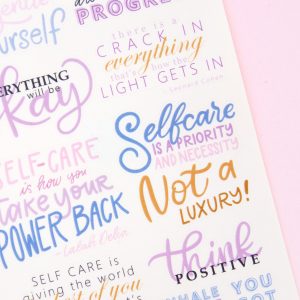 yourself
PROGRESS
there is a
CRACK IN
everything
that's how the
LIGHT GETS IN
- Leonard Cohen
EVERYTHING
will be
okay
Selfcare
IS A PRIORITY
AND NECESSITY
Not a
LUXURY!
SELF-CARE
is how you
take your
POWER BACK
- Lalah Delia
think
POSITIVE
SELF CARE is
giving the world